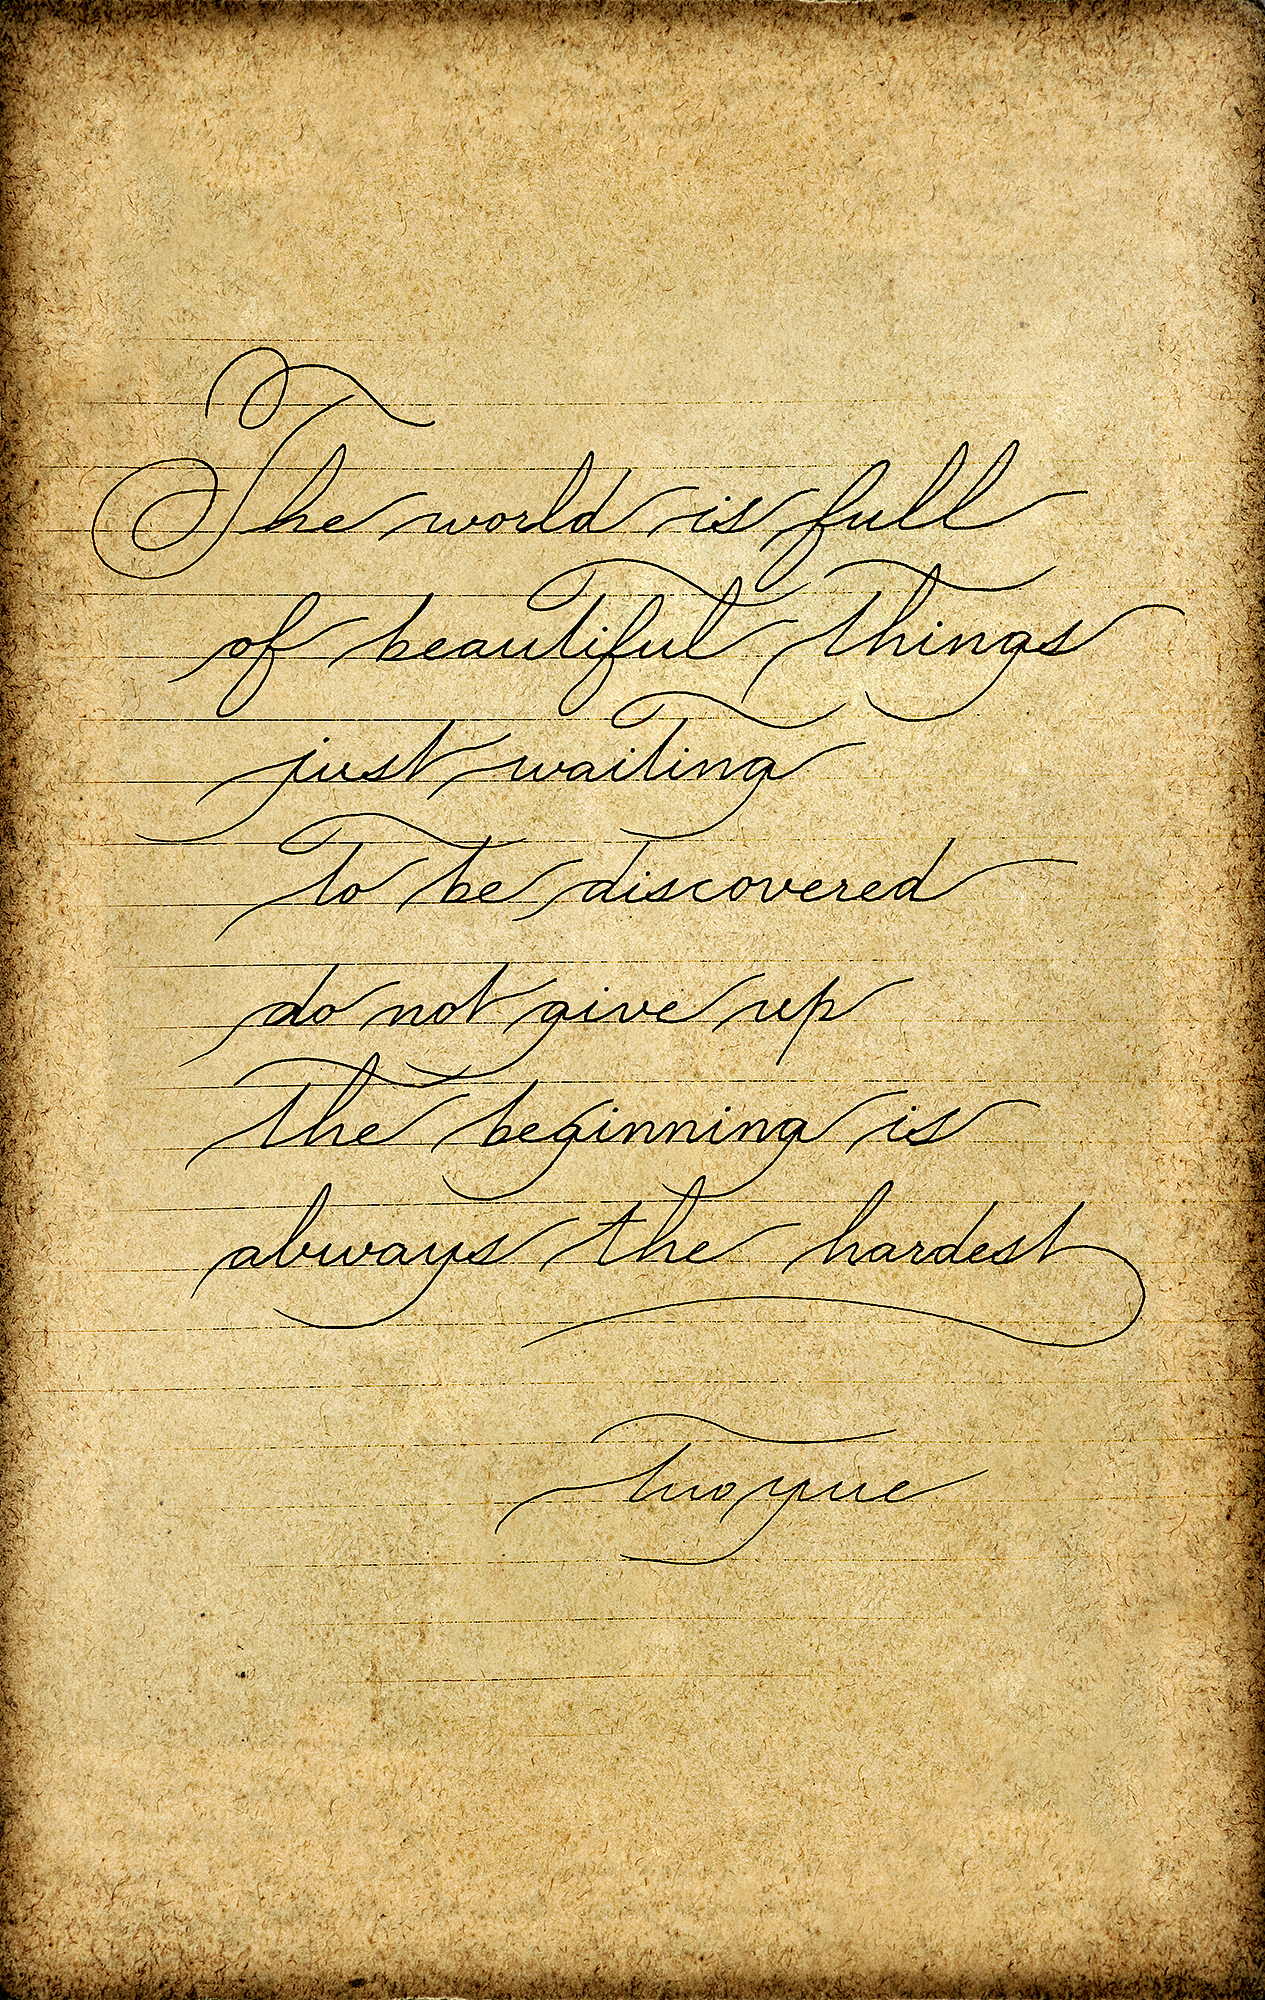 The world is full
of beautiful things
just waiting
to be discovered
do not give up
the beginning is
always the hardest
Tuoyue